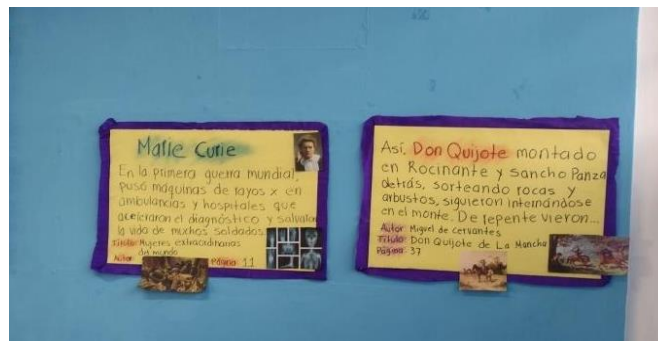 Marie Curie
En la primera guerra mundial,
puso máquinas de rayos x en
ambulancias y hospitales que
aceleraron el diagnóstico y salvaron
la vida de muchos soldados
Título: Mujeres extraordinarias
del mundo
Autor:
Página: 11
Así, Don Quijote montado
en Rocinante y Sancho Panza
detrás, sorteando rocas y
arbustos, siguieron internándose
en el monte. De repente vieron...
Autor: Miguel de cervantes
Título: Don Quijote de La Mancha
Página: 37